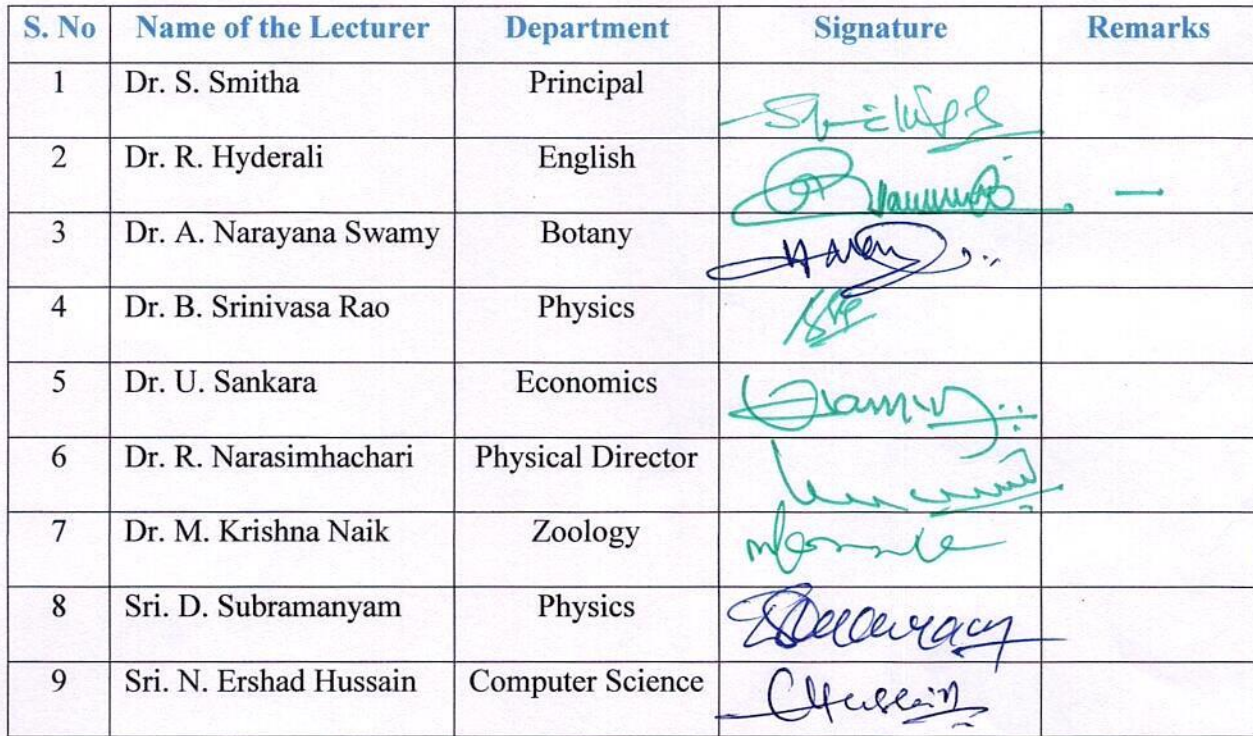 S. No Name of the Lecturer Department Signature Remarks
1 Dr. S. Smitha Principal
2 Dr. R. Hyderali English
3 Dr. A. Narayana Swamy Botany
4 Dr. B. Srinivasa Rao Physics
5 Dr. U. Sankara Economics
6 Dr. R. Narasimhachari Physical Director
7 Dr. M. Krishna Naik Zoology
8 Sri. D. Subramanyam Physics
9 Sri. N. Ershad Hussain Computer Science